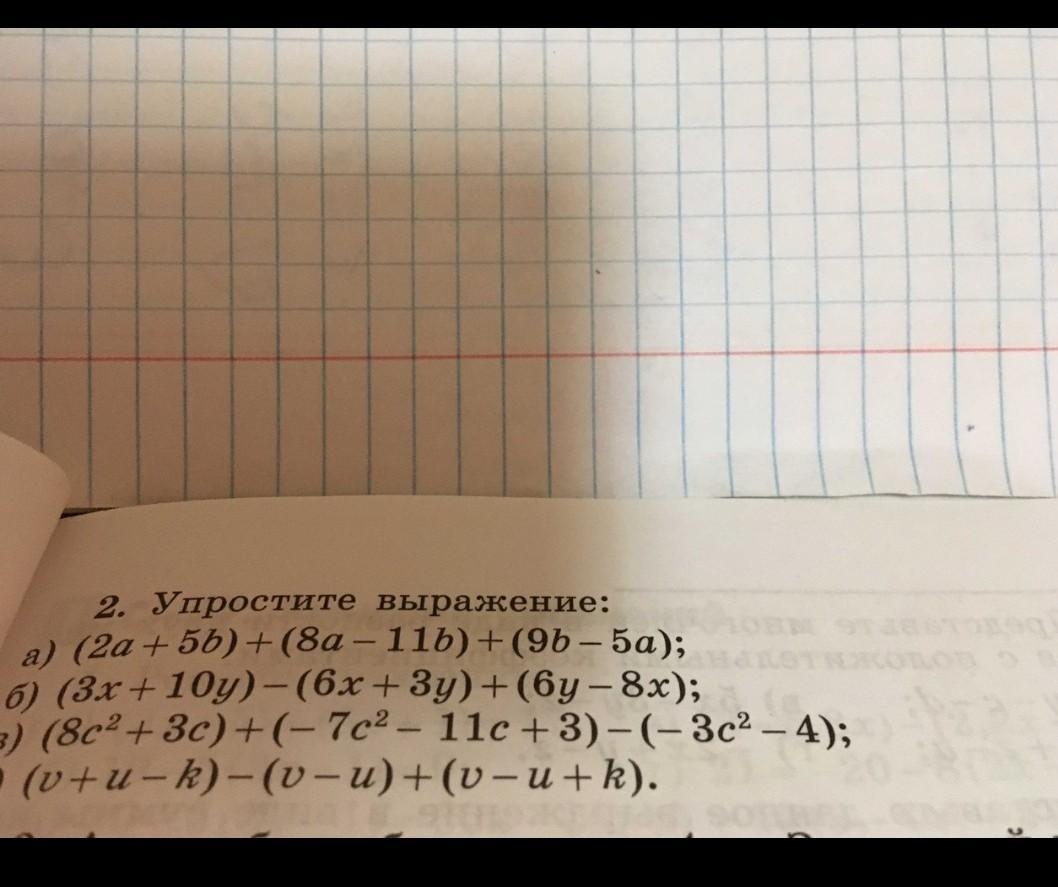 2. Упростите выражение:
а) (2a + 5b) + (8a − 11b) + (9b − 5a);
б) (3x + 10y) − (6x + 3y) + (6y − 8x);
в) (8c² + 3c) + (− 7c² − 11c + 3) − (− 3c² − 4);
) (v + u − k) − (v − u) + (v − u + k).